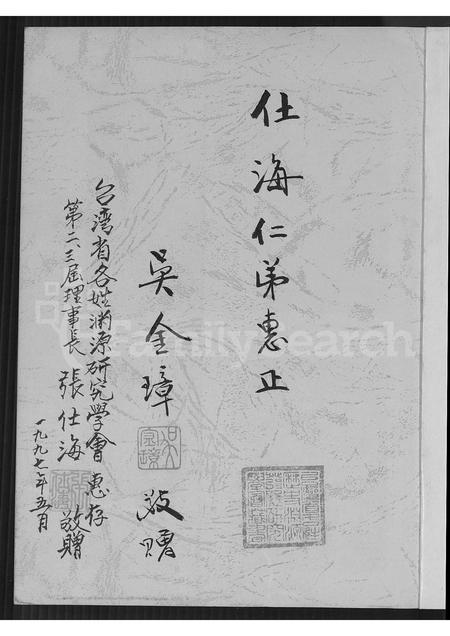 仕海仁弟惠正
吴金璋 敬贈
台湾省各姓渊源研究学會 惠存
第二、三屆理事長 張仕海 敬贈
一九九七年五月
FamilySearch